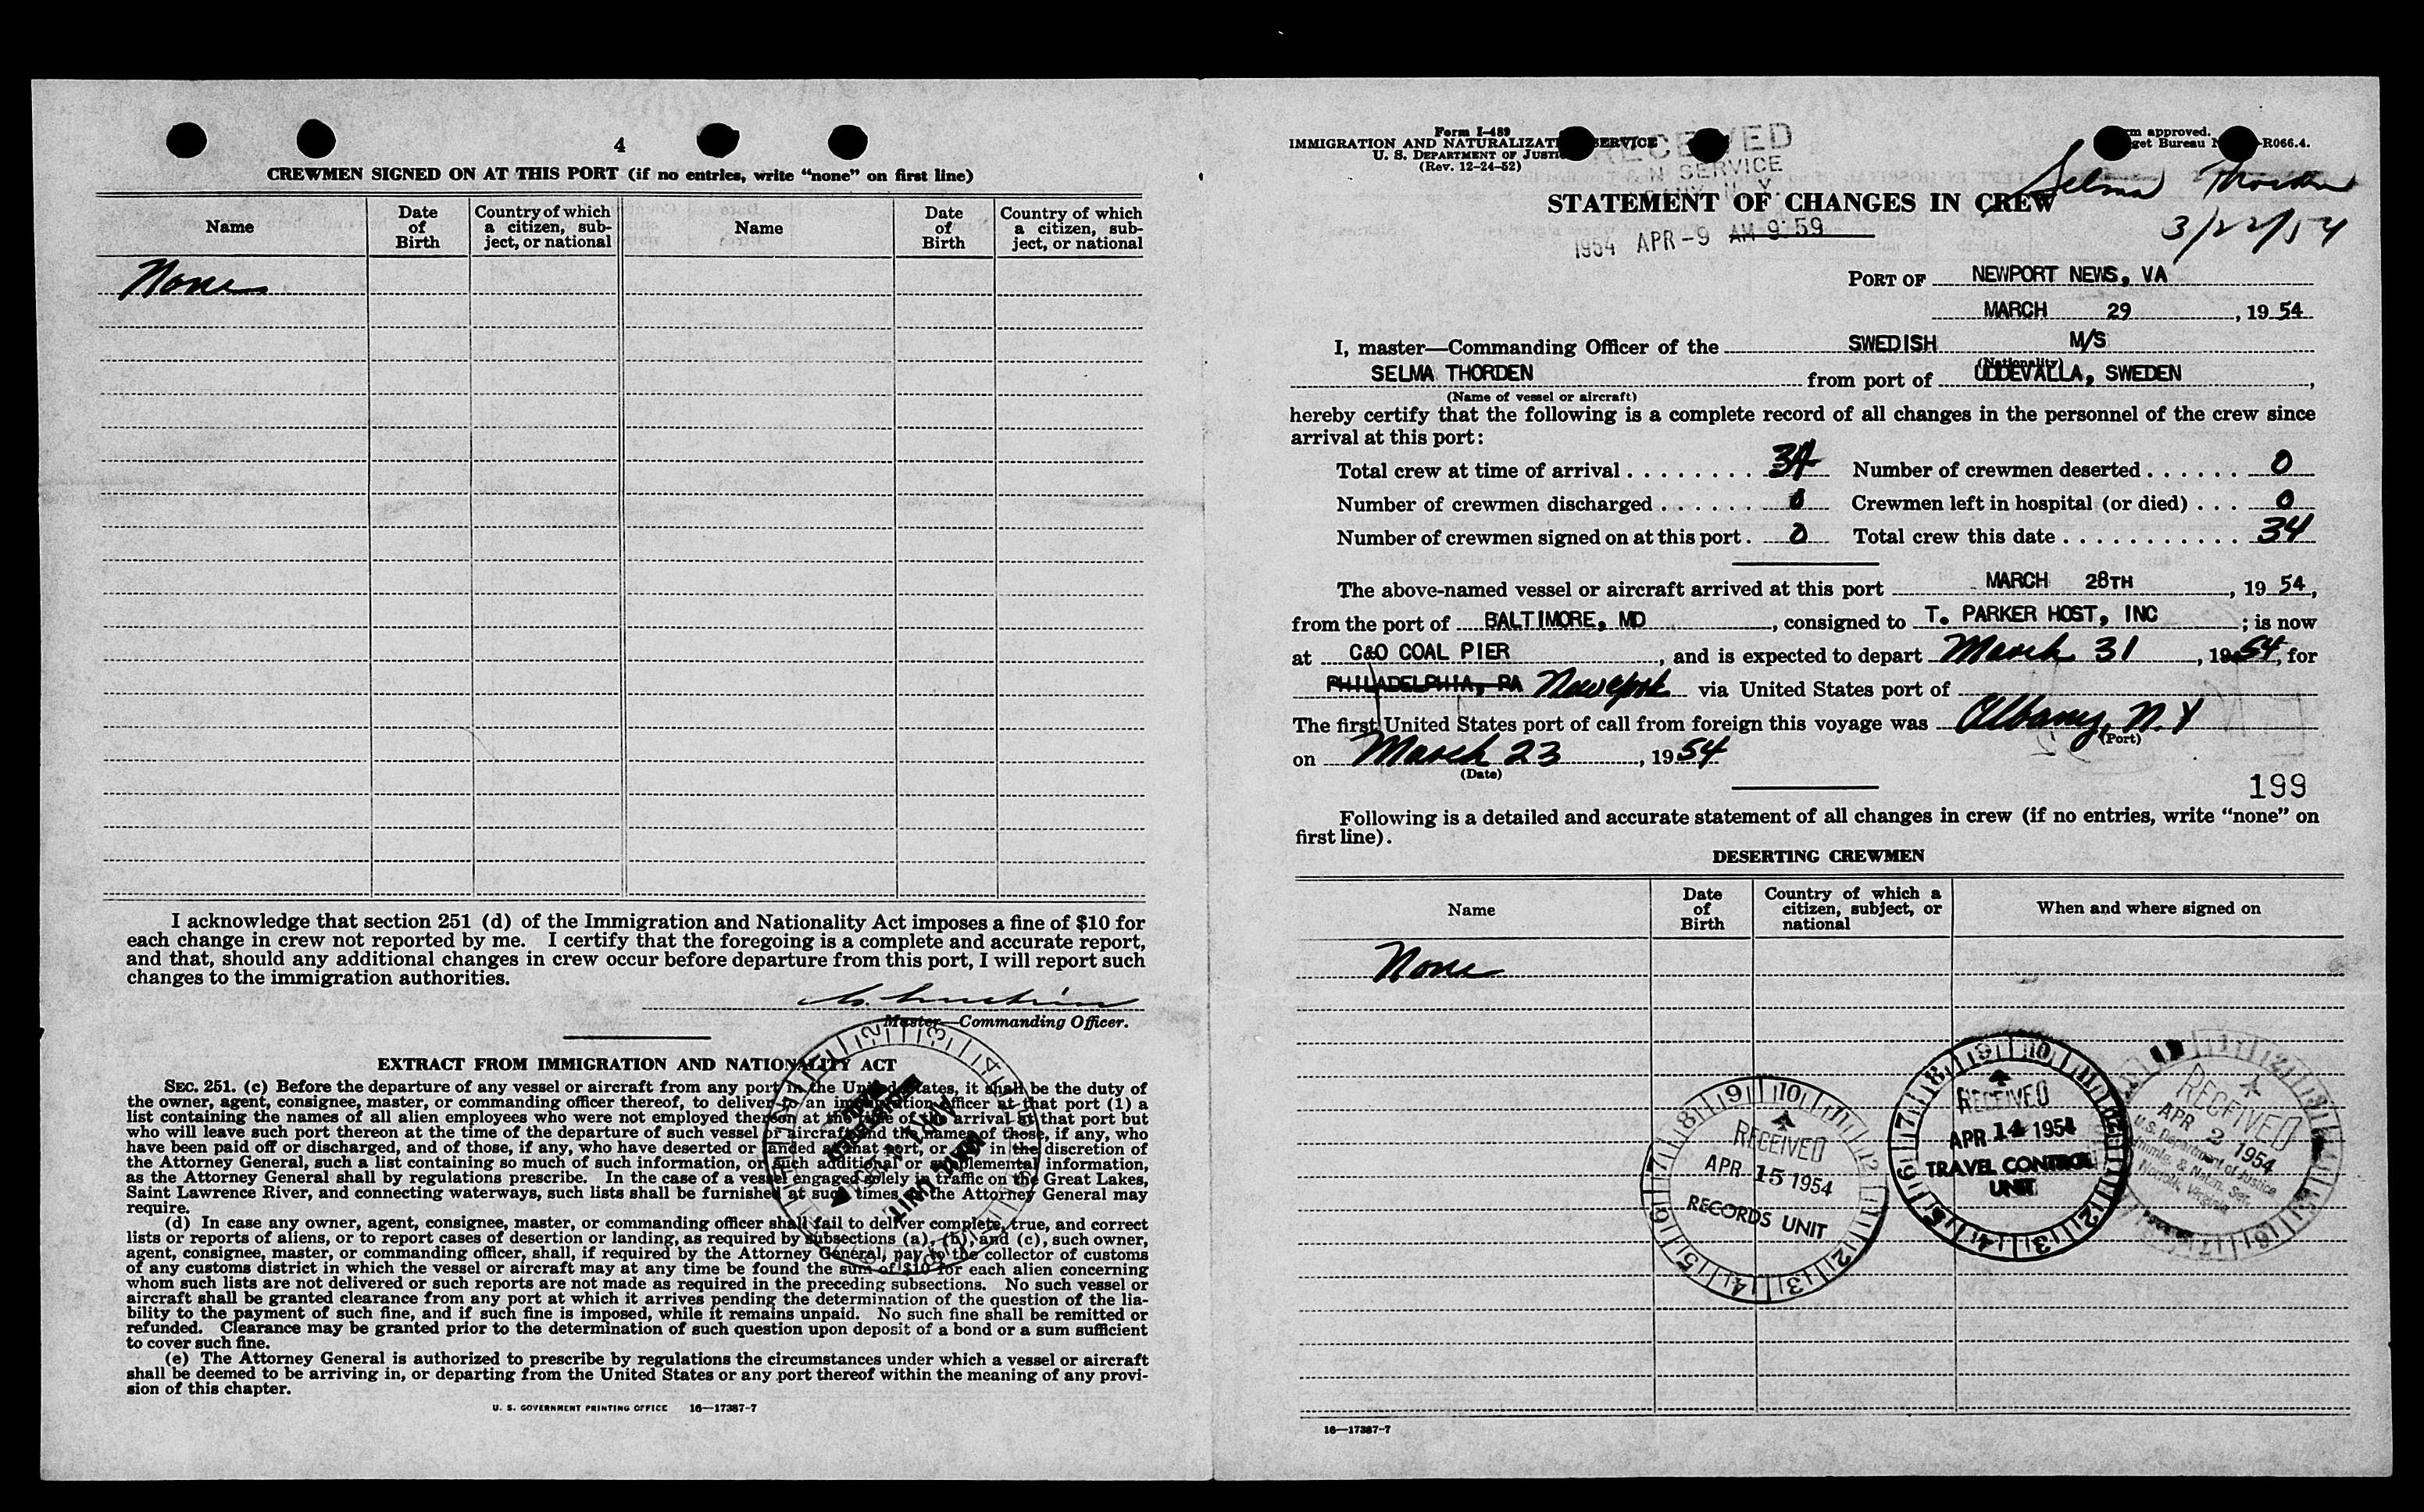 4
CREWMEN SIGNED ON AT THIS PORT (if no entries, write "none" on first line)
Name
Date of Birth
Country of which a citizen, subject, or national
Name
Date of Birth
Country of which a citizen, subject, or national
None
I acknowledge that section 251 (d) of the Immigration and Nationality Act imposes a fine of $10 for
each change in crew not reported by me. I certify that the foregoing is a complete and accurate report,
and that, should any additional changes in crew occur before departure from this port, I will report such
changes to the immigration authorities.
Master—Commanding Officer.
EXTRACT FROM IMMIGRATION AND NATIONALITY ACT
SEC. 251. (c) Before the departure of any vessel or aircraft from any port in the United States, it shall be the duty of
the owner, agent, consignee, master, or commanding officer thereof, to deliver to an immigration officer at that port (1) a
list containing the names of all alien employees who were not employed thereon at the time of the arrival at that port but
who will leave such port thereon at the time of the departure of such vessel or aircraft and the names of those, if any, who
have been paid off or discharged, and of those, if any, who have deserted or landed at that port, or (2) in the discretion of
the Attorney General, such a list containing so much of such information, or such additional or supplemental information,
as the Attorney General shall by regulations prescribe. In the case of a vessel engaged solely in traffic on the Great Lakes,
Saint Lawrence River, and connecting waterways, such lists shall be furnished at such times as the Attorney General may
require.
(d) In case any owner, agent, consignee, master, or commanding officer shall fail to deliver complete, true, and correct
lists or reports of aliens, or to report cases of desertion or landing, as required by subsections (a), (b), and (c), such owner,
agent, consignee, master, or commanding officer, shall, if required by the Attorney General, pay to the collector of customs
of any customs district in which the vessel or aircraft may at any time be found the sum of $10 for each alien concerning
whom such lists are not delivered or such reports are not made as required in the preceding subsections. No such vessel or
aircraft shall be granted clearance from any port at which it arrives pending the determination of the question of the lia-
bility to the payment of such fine, and if such fine is imposed, while it remains unpaid. No such fine shall be remitted or
refunded. Clearance may be granted prior to the determination of such question upon deposit of a bond or a sum sufficient
to cover such fine.
(e) The Attorney General is authorized to prescribe by regulations the circumstances under which a vessel or aircraft
shall be deemed to be arriving in, or departing from the United States or any port thereof within the meaning of any provi-
sion of this chapter.
U. S. GOVERNMENT PRINTING OFFICE 16—17387-7
MAIL UNIT
Form I-489
IMMIGRATION AND NATURALIZATION SERVICE
U. S. DEPARTMENT OF JUSTICE
(Rev. 12-24-52)
RECEIVED
& N SERVICE
Form approved.
Budget Bureau R066.4.
Selma Thorden
3/22/54
STATEMENT OF CHANGES IN CREW
1954 APR -9 AM 9:59
PORT OF NEWPORT NEWS, VA
MARCH 29, 1954
I, master—Commanding Officer of the SWEDISH M/S
(Nationality)
SELMA THORDEN from port of UDDEVALLA, SWEDEN,
(Name of vessel or aircraft)
hereby certify that the following is a complete record of all changes in the personnel of the crew since
arrival at this port:
Total crew at time of arrival 34 Number of crewmen deserted 0
Number of crewmen discharged 0 Crewmen left in hospital (or died) 0
Number of crewmen signed on at this port 0 Total crew this date 34
The above-named vessel or aircraft arrived at this port MARCH 28TH, 1954,
from the port of BALTIMORE, MD, consigned to T. PARKER HOST, INC; is now
at C&O COAL PIER, and is expected to depart March 31, 1954, for
PHILADELPHIA, PA New York via United States port of
The first United States port of call from foreign this voyage was Albany, N.Y
(Port)
on March 23, 1954
(Date)
199
Following is a detailed and accurate statement of all changes in crew (if no entries, write "none" on
first line).
DESERTING CREWMEN
Name
Date of Birth
Country of which a citizen, subject, or national
When and where signed on
None
RECEIVED
APR 15 1954
RECORDS UNIT
RECEIVED
APR 14 1954
TRAVEL CONTROL
UNIT
RECEIVED
APR 2 1954
U.S. Department of Justice
Immig. & Natzn. Ser.
Norfolk, Virginia
16—17387-7